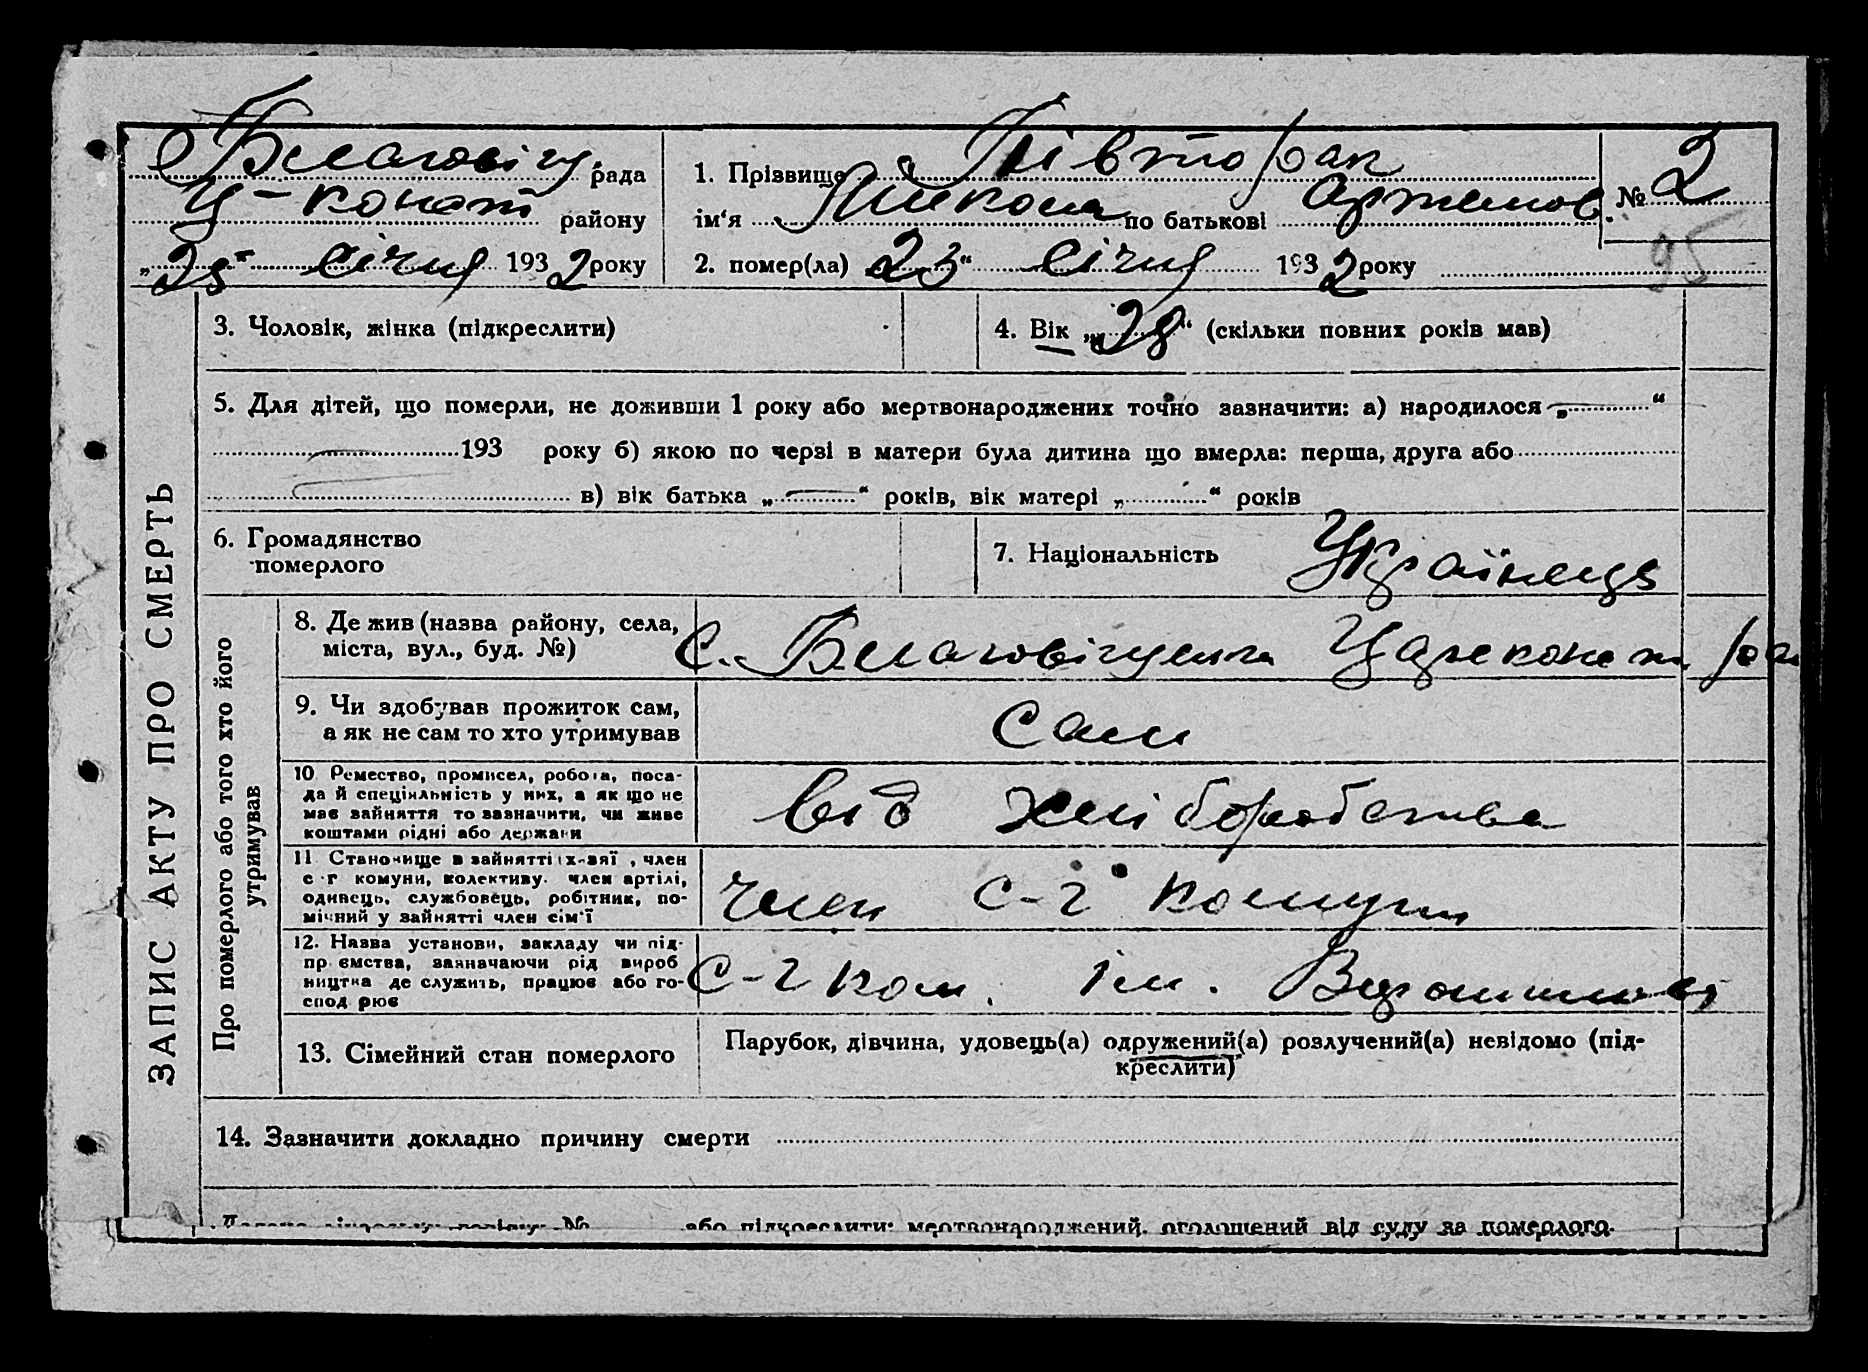 Благовіщ. рада
Ц-конст району
„25" січня 1932 року
1. Прізвище Півторак
ім'я Микола по батькові Артемов.
2. помер(ла) 23“ січня 1932 року
№ 2
95
3. Чоловік, жінка (підкреслити)
4. Вік „28“ (скільки повних років мав)
5. Для дітей, що померли, не доживши 1 року або мертвонароджених точно зазначити: а) народилося „ “
193 року б) якою по черзі в матери була дитина що вмерла: перша, друга або
в) вік батька „ “ років, вік матері „ “ років
6. Громадянство
померлого
7. Національність Українець
ЗАПИС АКТУ ПРО СМЕРТЬ
Про померлого або того хто його
утримував
8. Де жив (назва району, села,
міста, вул., буд. №)
с. Благовіщенка Цареконст. рай
9. Чи здобував прожиток сам,
а як не сам то хто утримував
сам
10 Ремество, промисел, робота, поса-
да й спеціяльність у них, а як що не
має зайняття то зазначити, чи живе
коштами рідні або держави
від хліборобства
11 Становище в зайнятті, член
с-г комуни, колективу. член артілі,
одинець, службовець, робітник, по-
мічний у зайнятті член сім'ї
член с-г комуни
12. Назва установи, закладу чи під-
приємства, зазначаючи рід вироб
ництва де служить, працює або го-
сподарює
с-г ком. ім. Ворошилова
13. Сімейний стан померлого
Парубок, дівчина, удовець(а) одружений(а) розлучений(а) невідомо (під-
креслити)
14. Зазначити докладно причину смерти
№ або підкреслити: мертвонароджений, оголошений від суду за померлого.